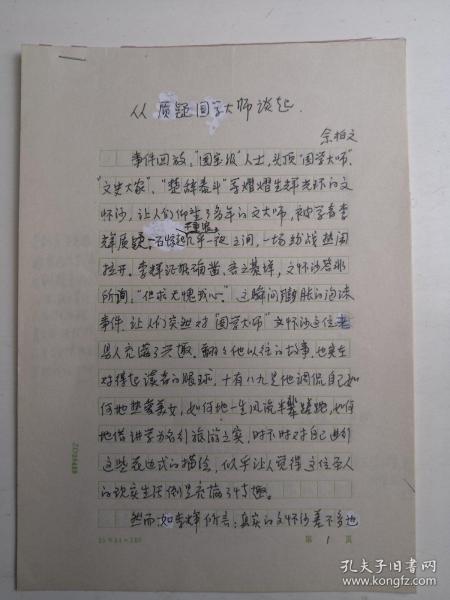 从质疑国学大师谈起.
余柏文
事件回放，"国宝级"人士，头顶"国学大师"、
"文史大家"、"楚辞泰斗"等熠熠生辉光环的文
怀沙，让人们仰望了多年的文大师，被学者李
千重浪。
辉质疑，一石惊起几乎一夜之间，一场纷战热闹
拉开。李辉证据确凿、言之凿凿，文怀沙答非
所询，"但求无愧我心"。这瞬间膨胀的泡沫
事件，让人们突然对"国学大师"文怀沙这位老
名人充满了兴趣。翻了他以往的故事，也实在
对得起读者的眼球，十有八九是他调侃自己如
何地热爱美女，如何地一生风流蹉跎，如何
地借讲学为名行旅游之实，时不时对自己进行
这些表达式的描绘，似乎让人觉得这位名人
的现实生活倒是充满了情趣。
然而，如李辉所言：真实的文怀沙差不多也
第 1 页
孔夫子旧书网